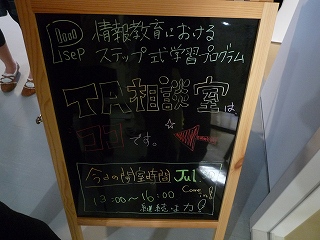 sep 情報教育における
ステップ式学習プログラム
TA相談室は
ココです。
今日の開室時間 Jul
13:00～16:00 Come in!!
継続は力!